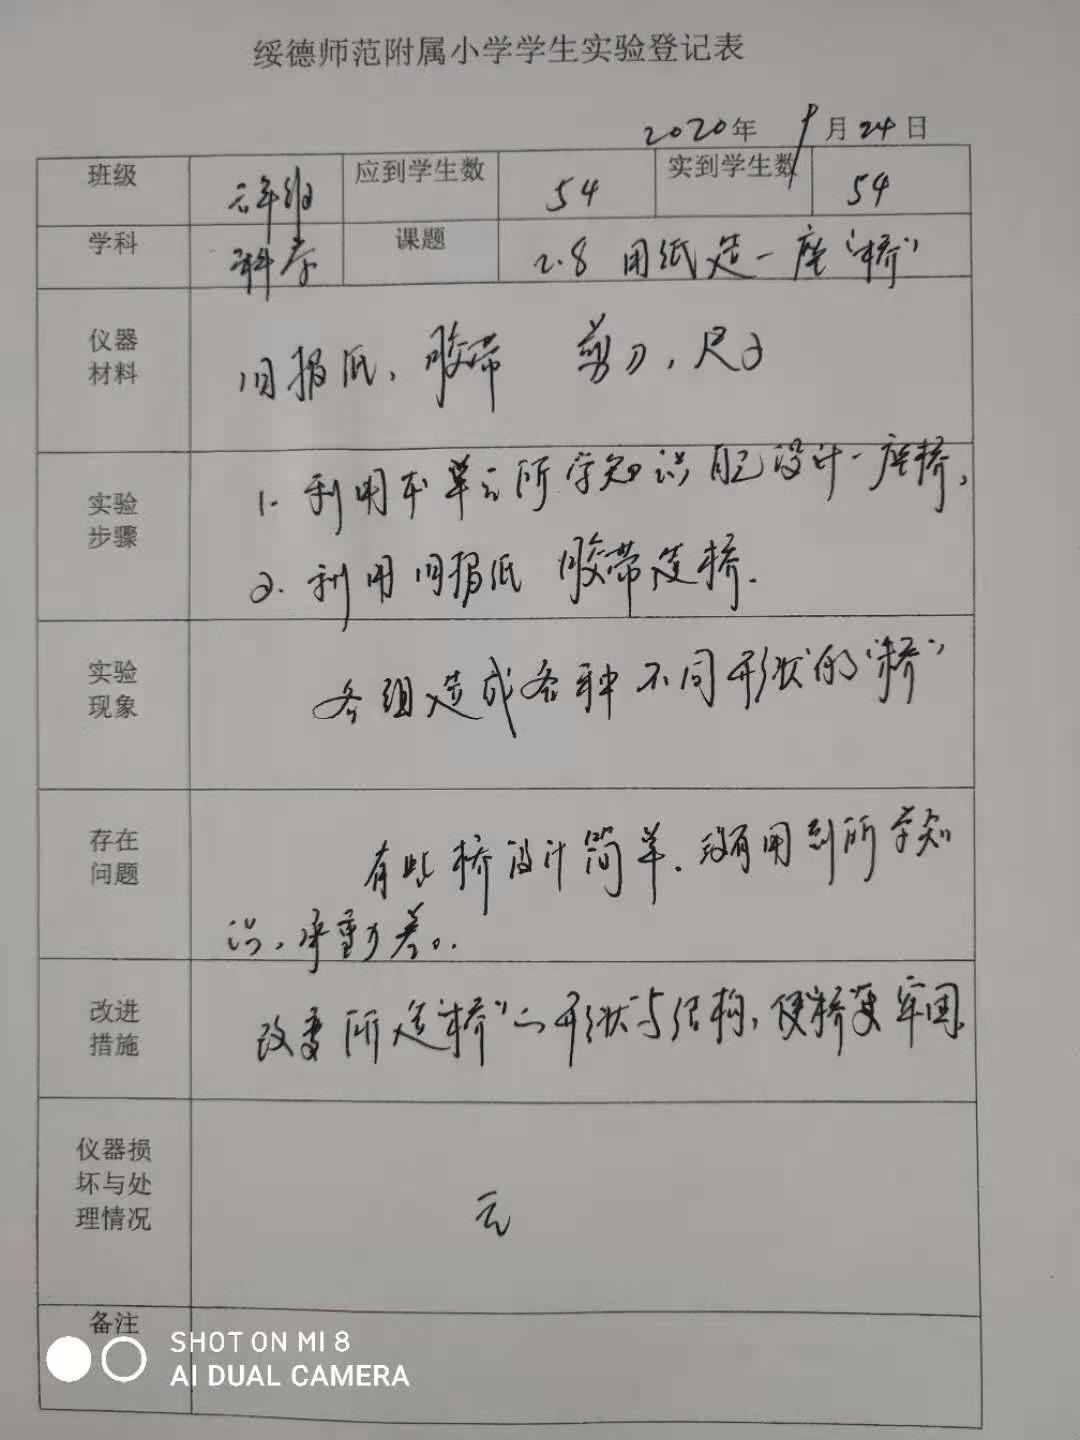 绥德师范附属小学学生实验登记表
2020年 9月24日
班级 六年级 应到学生数 54 实到学生数 54
学科 科学 课题 2.8 用纸造一座“桥”
仪器
材料
旧报纸、胶带 剪刀、尺子
实验
步骤
1. 利用本单元所学知识自己设计一座桥,
2. 利用旧报纸 胶带造桥.
实验
现象
各组造成各种不同形状的“桥”
存在
问题
有些桥设计简单.没有用到所学知
识、承重力差。
改进
措施
改变所造“桥”的形状与结构,使“桥”更牢固.
仪器损
坏与处
理情况
无
备注
SHOT ON MI 8
AI DUAL CAMERA